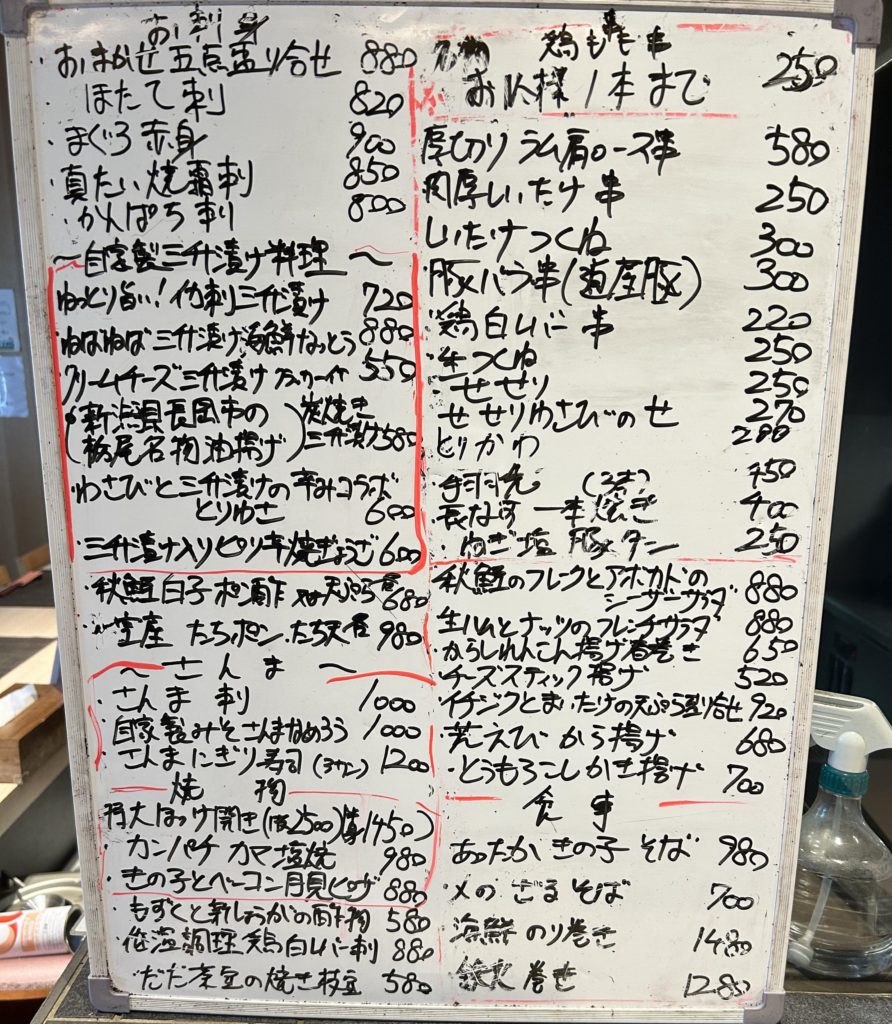 お刺身
・おまかせ五点盛り合せ 880
ほたて刺 820
・まぐろ赤身 900
真たい焼霜刺 850
・かんぱち刺 800
〜自家製三升漬け料理〜
ねっとり旨い!イカ刺三升漬け 720
・ねばねば三升漬け海鮮なっとう 880
クリームチーズ三升漬け クラッカー付 550
・(新潟県長岡市の栃尾名物油揚げ) 炭焼き三升漬け 580
・わさびと三升漬けの辛みコラボ
とりわさ 600
・三升漬け入りピリ辛焼ぎょうざ 600
・秋鮭白子ポン酢 又は天ぷら 680
たちポン、たち天 980
〜さんま〜
・さんま刺 1000
自家製みそさんまなめろう 1000
・さんまにぎり寿司 (3カン) 1200
焼物
特大ほっけ開き(1枚2500)(半身1450)
・カンパチカマ塩焼 980
・きの子とベーコン月見ピザ 880
・もずくと新しょうがの酢物 580
低温調理鶏白レバー刺 880
・だだ茶豆の焼き枝豆 580
名物 鶏もも串 250
お1人様1本まで
厚切りラム肩ロース串 580
肉厚しいたけ串 250
しいたけつくね 300
・豚バラ串(道産豚) 300
・鶏白レバー串 220
・生つくね 250
・せせり 250
せせりわさびのせ 270
とりかわ 280
・手羽先 (3本) 450
・長なす一本焼き 400
・ねぎ塩豚タン 250
・秋鮭のフレークとアボカドの
シーザーサラダ 880
生ハムとナッツのフレンチサラダ 880
・からしれんこん揚げ春巻き 650
・チーズスティック揚げ 520
・イチジクとまいたけの天ぷら盛り合せ 920
えび から揚げ 680
・とうもろこしかき揚げ 700
食事
あったかきの子そば 980
〆のざるそば 700
・海鮮のり巻き 1480
・鉄火巻き 1280